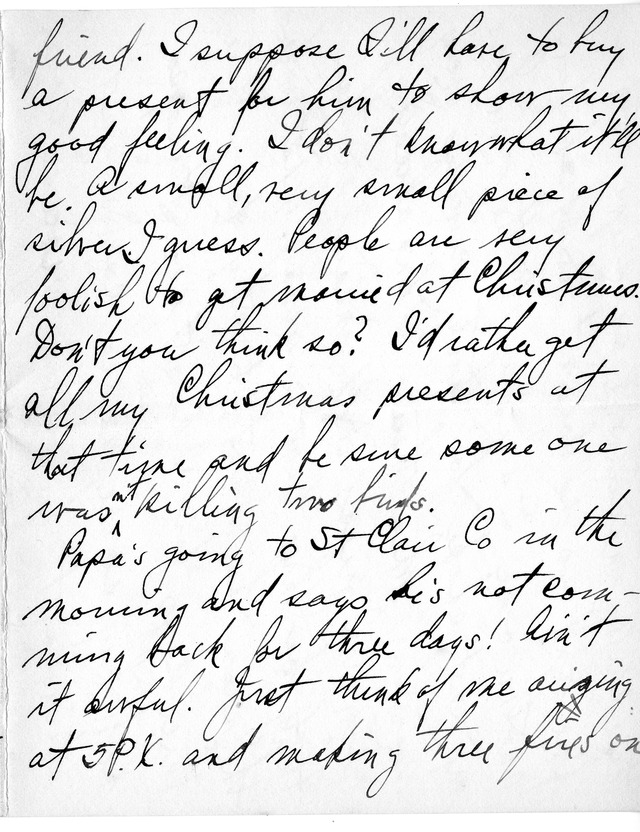 friend. I suppose I'll have to buy
a present for him to show my
good feeling. I don't know what it'll
be. A small, very small piece of
silver I guess. People are very
foolish to get married at Christmas.
Don't you think so? I'd rather get
all my Christmas presents at
that time and be sure some one
wasn't killing two birds.
Papa's going to St Clair Co in the
morning and says he's not com-
ming back for three days! Ain't
it awful. Just think of me arizing
at 5 P.K. and making three fires on